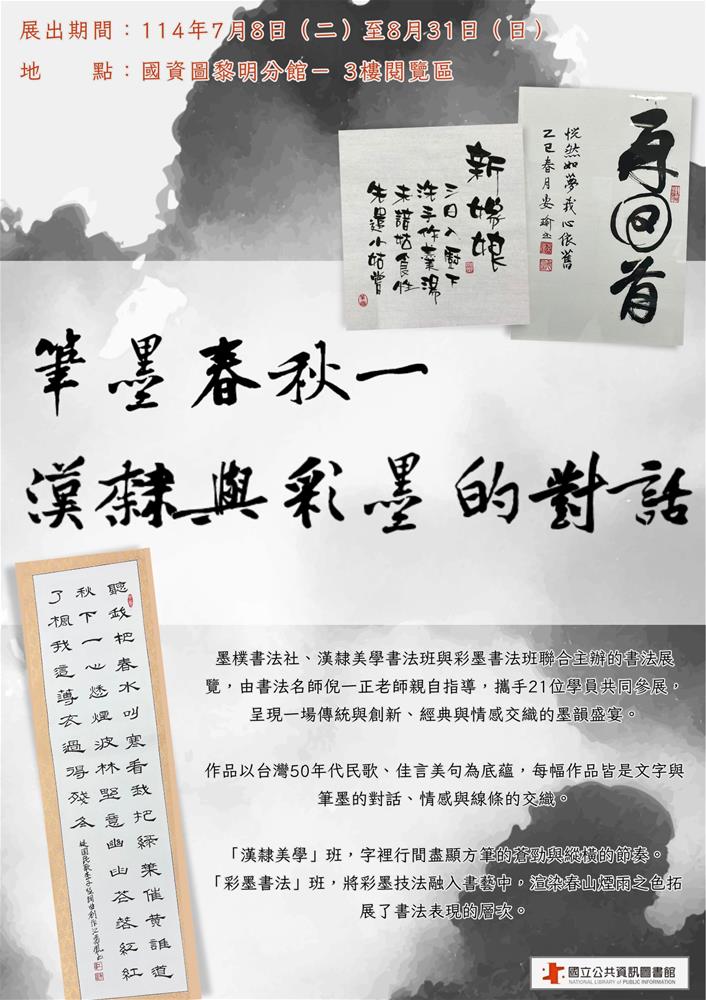 展出期間：114年7月8日（二）至8月31日（日）
地　　點：國資圖黎明分館－ 3樓閱覽區
再回首
恍然如夢我心依舊
乙巳春月
新嫁娘
三日入廚下
洗手作羹湯
未諳姑食性
先遣小姑嘗
筆墨春秋—
漢隸與彩墨的對話
聽我把春水叫寒看我把綠葉催黃誰道
秋下一心愁煙波林野意幽幽花落紅紅
了楓我這薄衣過得殘冬
墨樸書法社、漢隸美學書法班與彩墨書法班聯合主辦的書法展
覽，由書法名師倪一正老師親自指導，攜手21位學員共同參展，
呈現一場傳統與創新、經典與情感交織的墨韻盛宴。
作品以台灣50年代民歌、佳言美句為底蘊，每幅作品皆是文字與
筆墨的對話、情感與線條的交織。
「漢隸美學」班，字裡行間盡顯方筆的蒼勁與縱橫的節奏。
「彩墨書法」班，將彩墨技法融入書藝中，渲染春山煙雨之色拓
展了書法表現的層次。
國立公共資訊圖書館
NATIONAL LIBRARY of PUBLIC INFORMATION